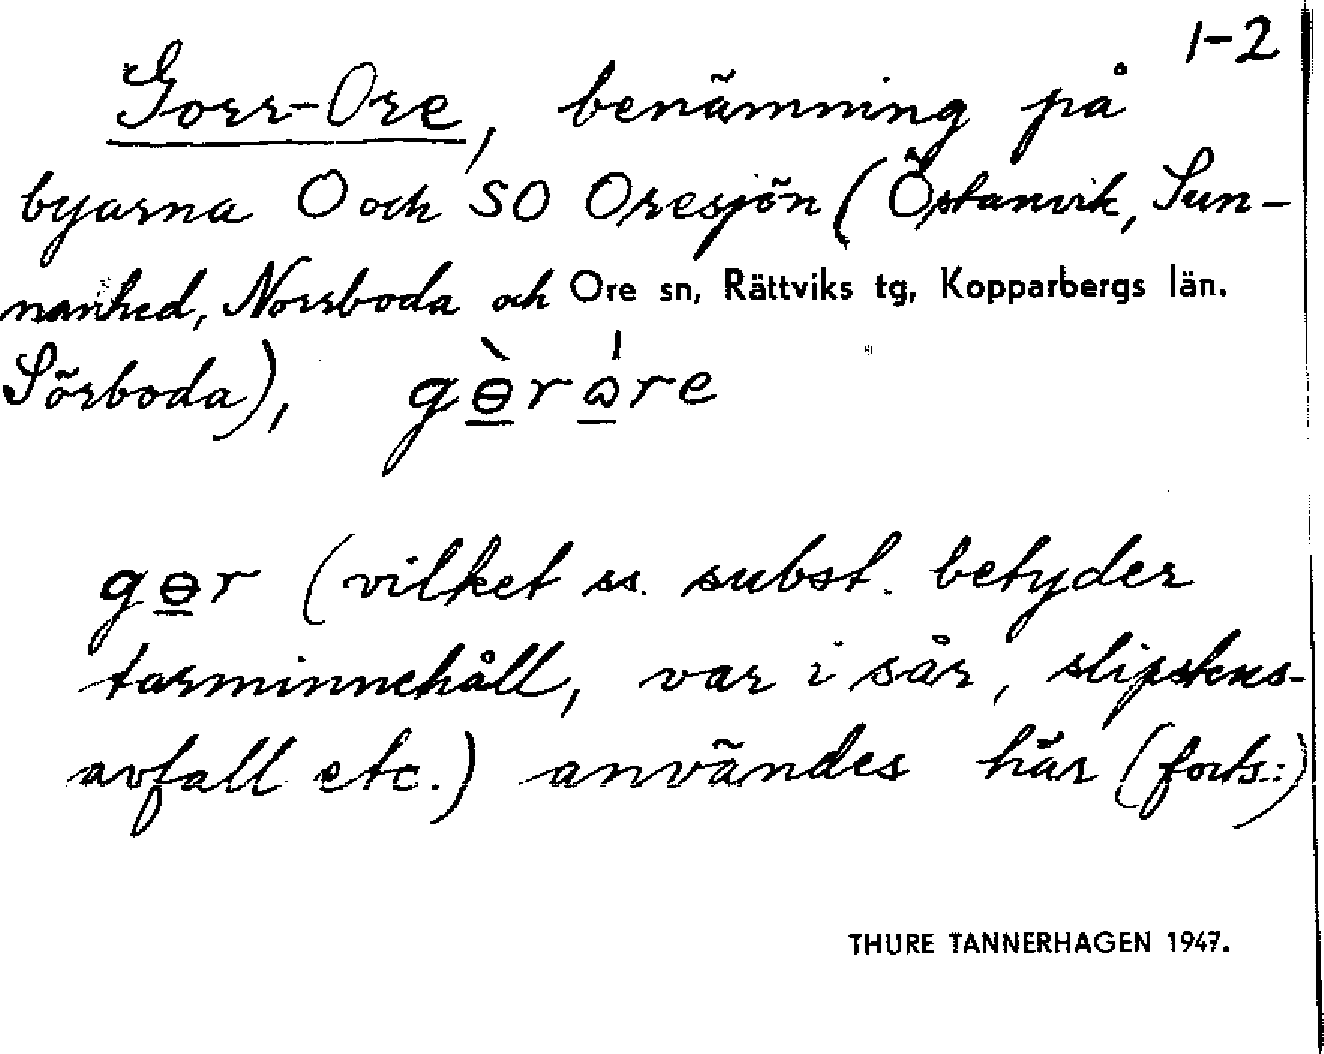 1-2
Gorr-Ore, benämning på
byarna O och SO Oresjön (Östanvik, Sun-
nanhed, Norrboda och Ore sn, Rättviks tg, Kopparbergs län.
Sörboda), gɵ̠̀rꭥ̠́re
gɵ̠r (vilket ss. subst. betyder
tarminnehåll, var i sår, slipstens-
avfall etc.) användes här (forts.:)
THURE TANNERHAGEN 1947.